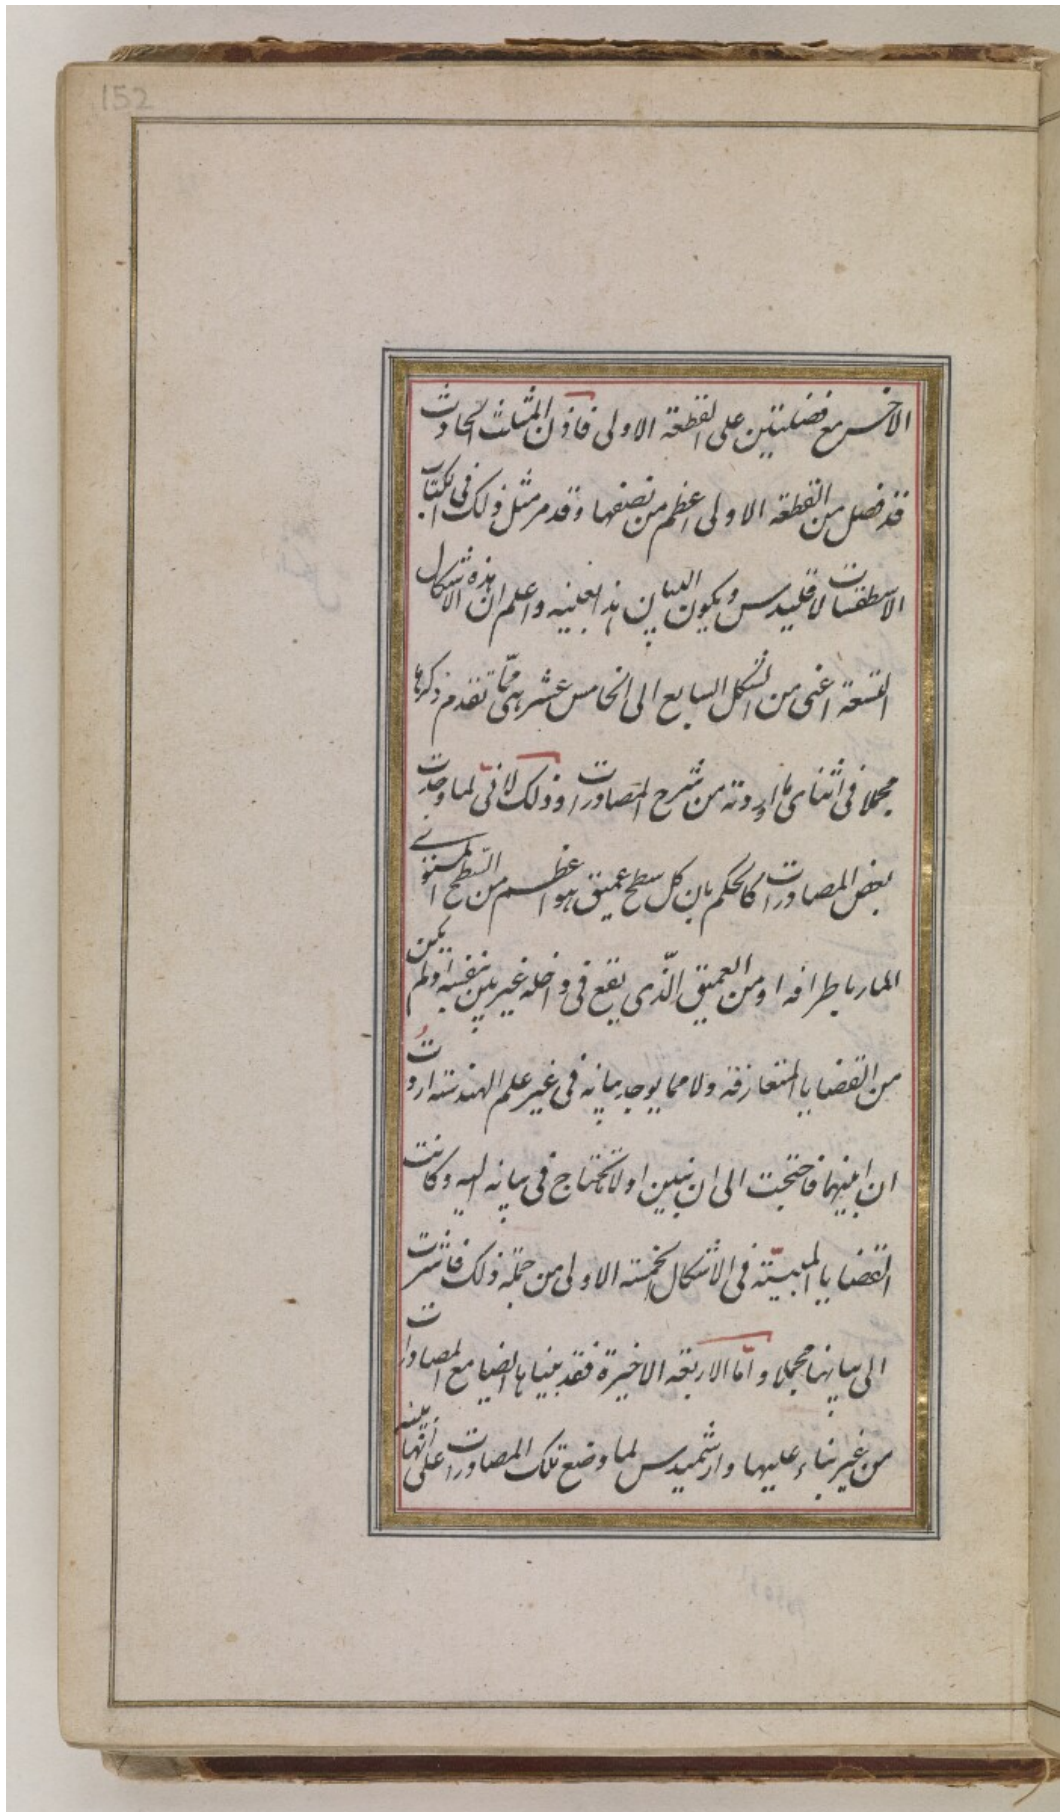 152
الاخرى مع فضلتين على القطعة الاولى فاذن المثلث الحادث
قد فصل من القطعة الاولى اعظم من نصفها وقد مر مثل ذلك فى كتاب
الاسطقسات لاقليدس ويكون البيان هذا بعينه واعلم ان هذه الاشكال
التسعة اعنى من الشكل السابع الى الخامس عشر هى مما تقدم ذكرها
مجملا فى اثناى ما اوردته من شرح المصادرات وذلك لانى لما وجدت
بعض المصادرات كالحكم بان كل سطح عميق هو اعظم من السطح المستوى
المار باطرافه او من العميق الذى يقع فى داخله غير بين بنفسه ولم يكن
من القضايا المتعارفة ولا مما يوجد بيانه فى غير علم الهندسة اردت
ان ابينهما فاحتجت الى ان نبين اولا ما نحتاج فى بيانه اليه وكانت
القضايا المبينة فى الاشكال الخمسة الاولى من جملة ذلك فاشرت
الى بيانها مجملا واما الاربعة الاخيرة فقد بيناها ايضا مع المصادرات
من غير بناء عليها وارشميدس لما وضع تلك المصادرات على انها بينة